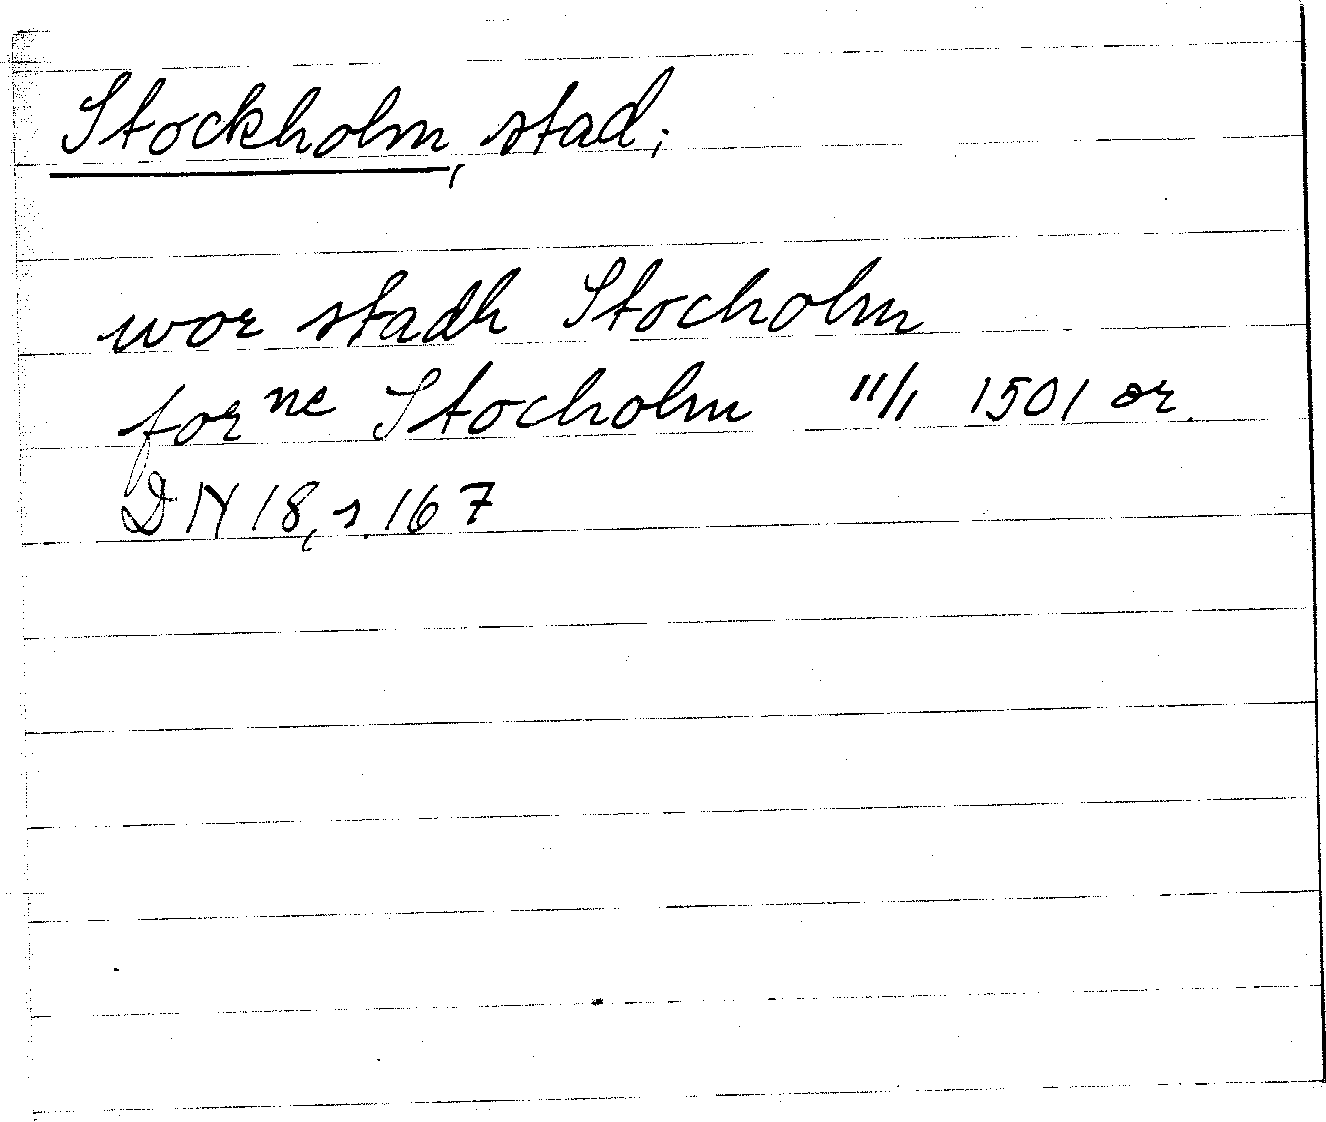 Stockholm, stad;
wor stadh Stocholm
for ne Stocholm 11/1 1501 or.
DN 18, s. 167